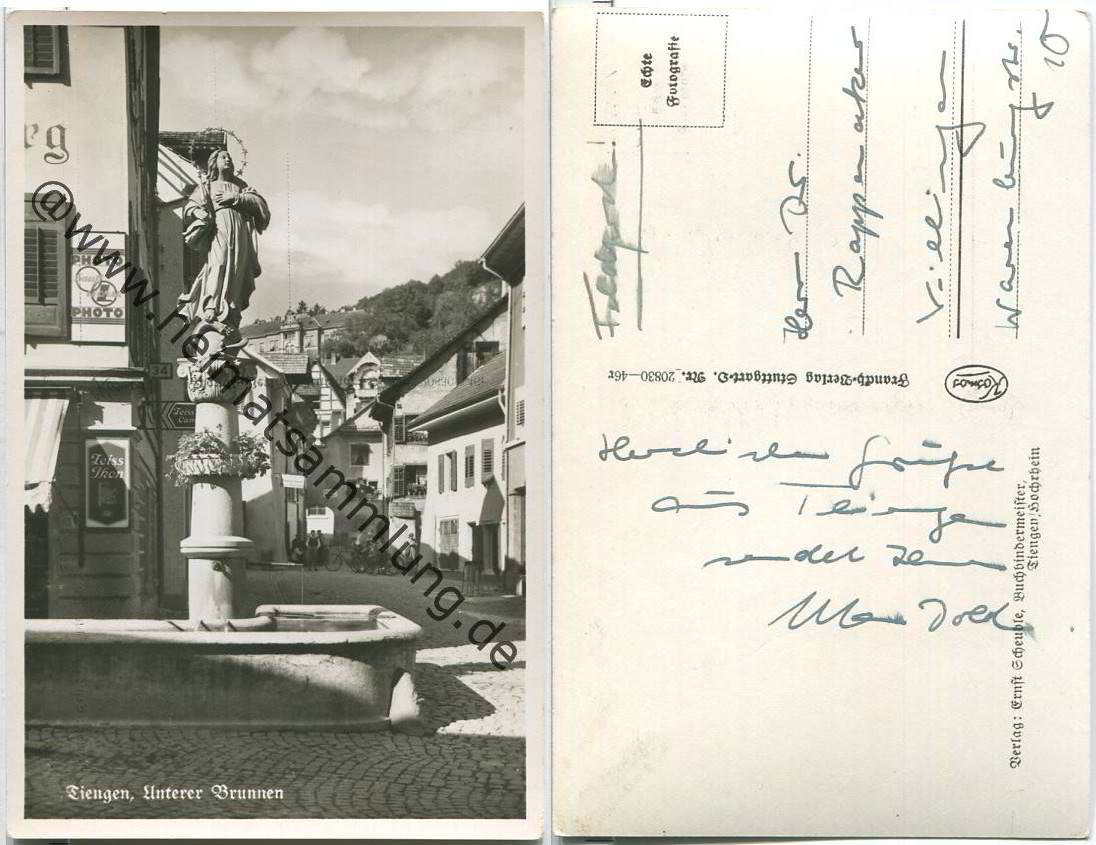 eg
PHOTO
PHOTO
34
Zeiss
Zeiss
Ikon
@www.heimatsammlung.de
Tiengen, Unterer Brunnen
Echte
Fotografie
Feldpost!
Herrn Dr.
Rappenecker
Villingen
10
Franckh-Verlag Stuttgart-O. Nr. 20830—46r
Kosmos
Herzliche Grüße
aus Tiengen
sendet Ihnen
Dold
Verlag: Ernst Scheuble, Buchbindermeister,
Tiengen/Hochrhein